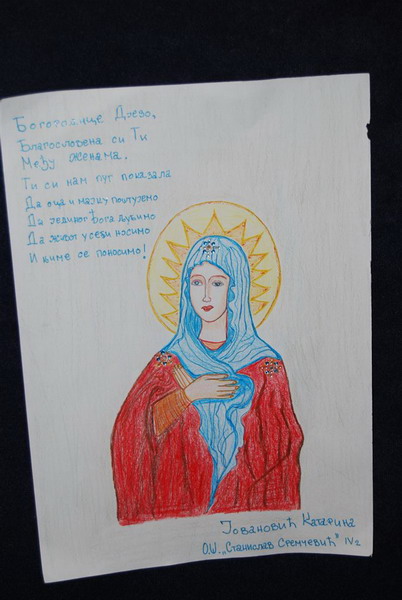 Богородице Дјево,
Благословена си Ти
Међу женама.
Ти си нам пут показала
Да оца и мајку поштујемо
Да јединог Бога љубимо
Да живот у себи носимо
И њиме се поносимо!
Јовановић Катарина
О.Ш. „Станислав Сремчевић" IV2